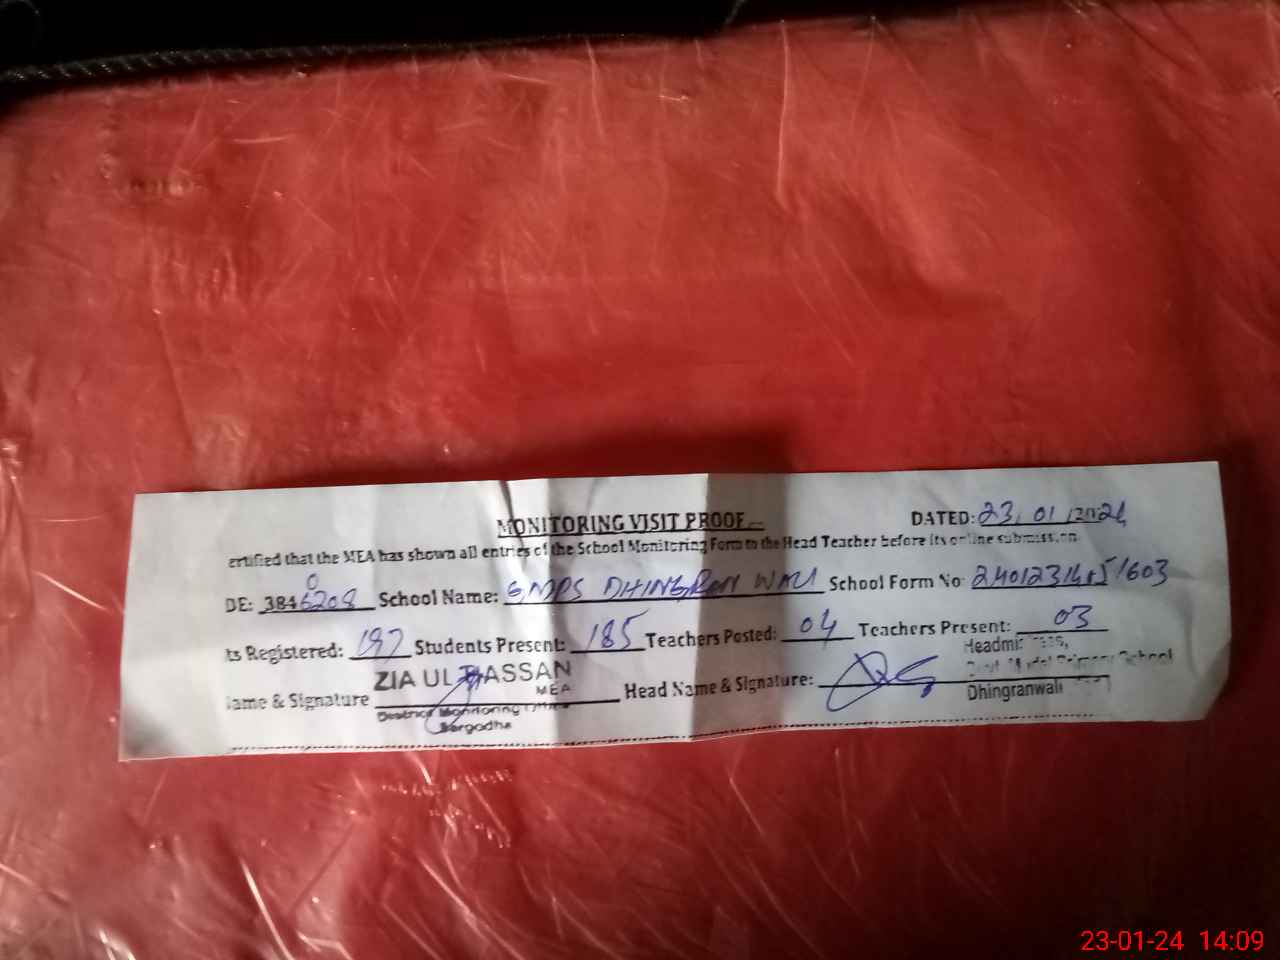 MONITORING VISIT PROOF DATED: 23, 01 /2024
ertified that the MEA has shown all entries of the School Monitoring Form to the Head Teacher before its online submission
DE: 3846208 School Name: GMPS DHINGRAN WALI School Form No:
ts Registered: 197 Students Present: 185 Teachers Posted: 04 Teachers Present: 03
ame & Signature ZIA UL HASSAN
MEA
District Monitoring Office
Sargodha
Head Name & Signature:
Headmistress,
Govt. Model Primary School
Dhingranwali
23-01-24 14:09